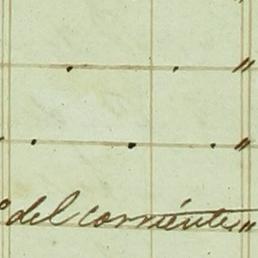 . . "
. . . "
del corriente "